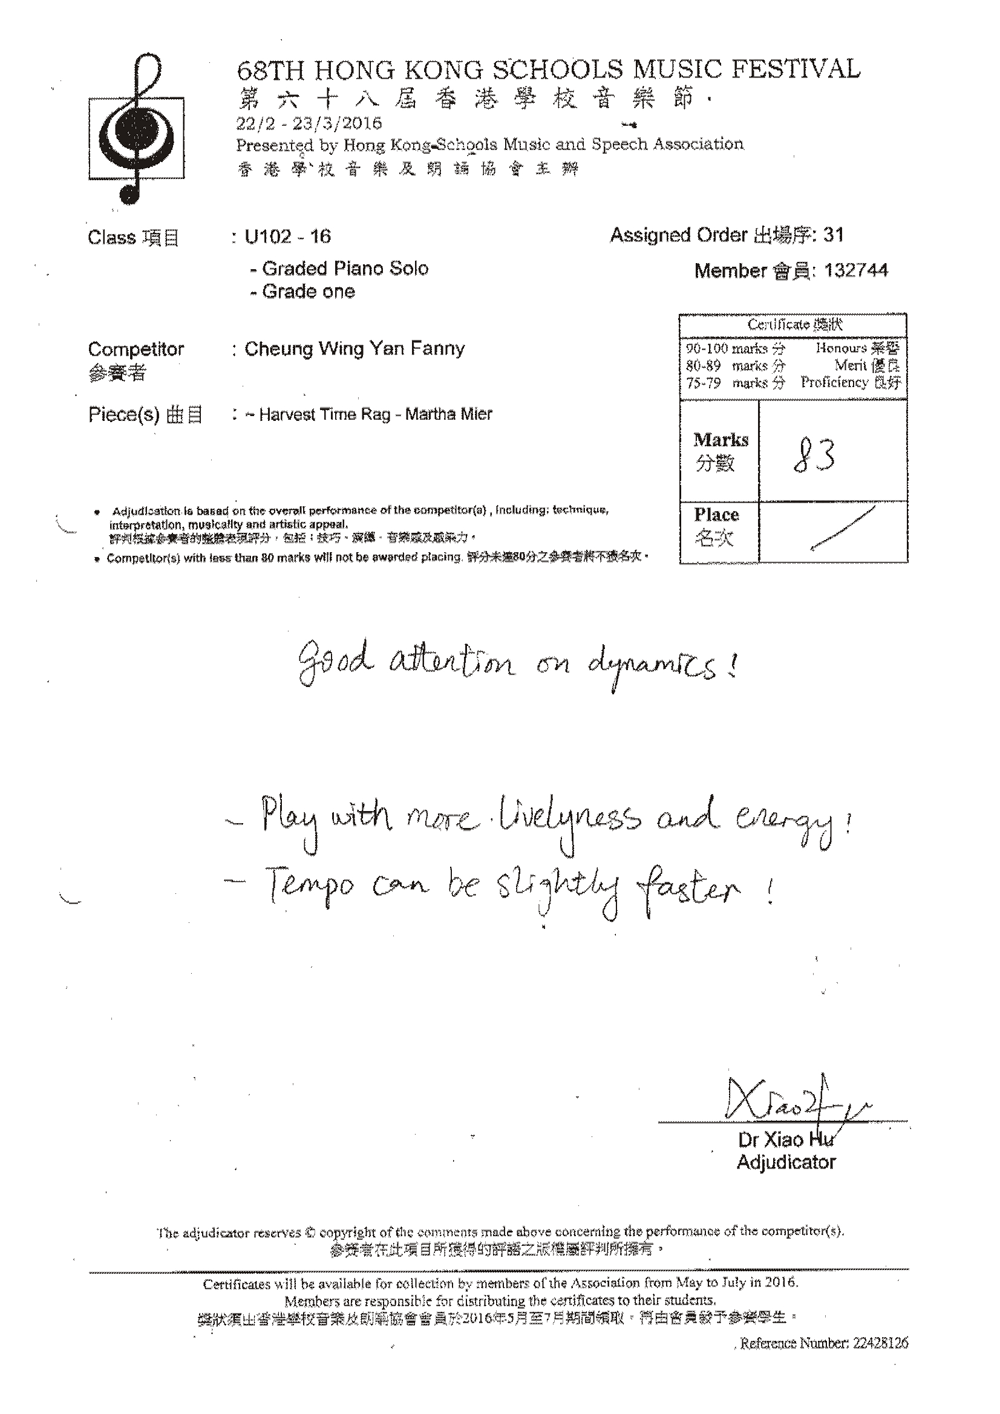 68TH HONG KONG SCHOOLS MUSIC FESTIVAL
第六十八屆香港學校音樂節
22/2 - 23/3/2016
Presented by Hong Kong Schools Music and Speech Association
香港學校音樂及朗誦協會主辦
Class 項目 : U102 - 16
- Graded Piano Solo
- Grade one
Assigned Order 出場序: 31
Member 會員: 132744
Competitor : Cheung Wing Yan Fanny
參賽者
Piece(s) 曲目 : ~ Harvest Time Rag - Martha Mier
Certificate 獎狀
90-100 marks 分 Honours 榮譽
80-89 marks 分 Merit 優良
75-79 marks 分 Proficiency 良好
Marks 83
分數
Place /
名次
• Adjudication is based on the overall performance of the competitor(s) , including: technique,
interpretation, musicality and artistic appeal.
評判根據參賽者的整體表現評分，包括：技巧、演繹、音樂感及感染力。
• Competitor(s) with less than 80 marks will not be awarded placing. 評分未達80分之參賽者將不獲名次。
Good attention on dynamics!
- Play with more livelyness and energy!
- Tempo can be slightly faster!
Xiao Hu
Dr Xiao Hu
Adjudicator
The adjudicator reserves © copyright of the comments made above concerning the performance of the competitor(s).
參賽者在此項目所獲得的評語之版權屬評判所擁有。
Certificates will be available for collection by members of the Association from May to July in 2016.
Members are responsible for distributing the certificates to their students.
獎狀須由香港學校音樂及朗誦協會會員於2016年5月至7月期間領取，再由會員發予參賽學生。
Reference Number: 22428126